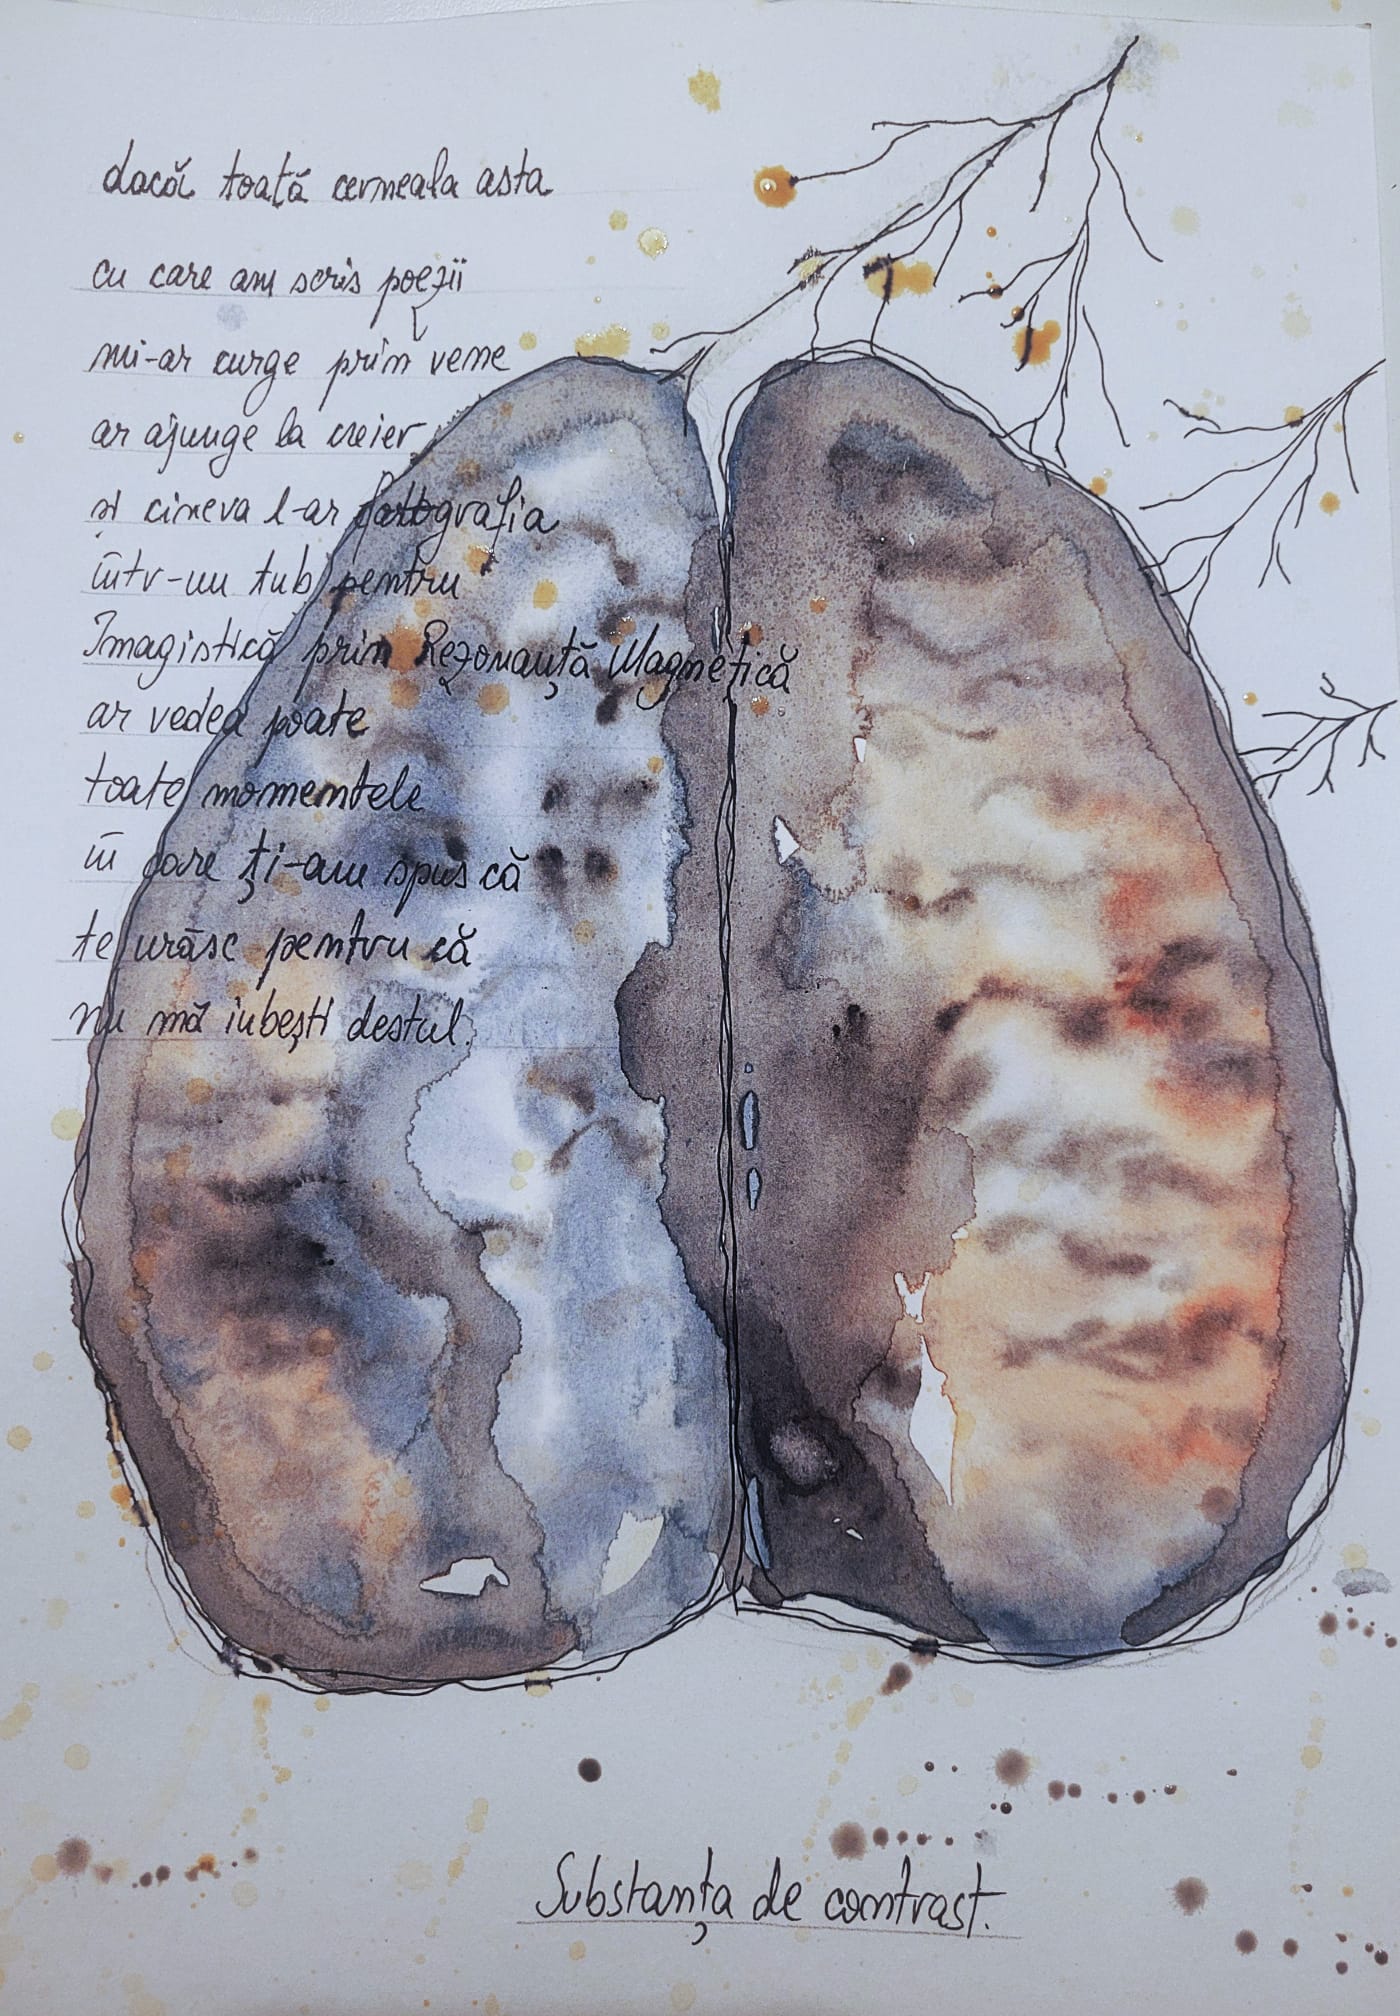 dacă toată cerneala asta
cu care am scris poezii
mi-ar curge prin vene
ar ajunge la creier
și cineva l-ar fotografia
într-un tub pentru
Imagistică prin Rezonanță Magnetică
ar vedea poate
toate momentele
în care ți-am spus că
te urăsc pentru că
nu mă iubești destul.
Substanța de contrast.